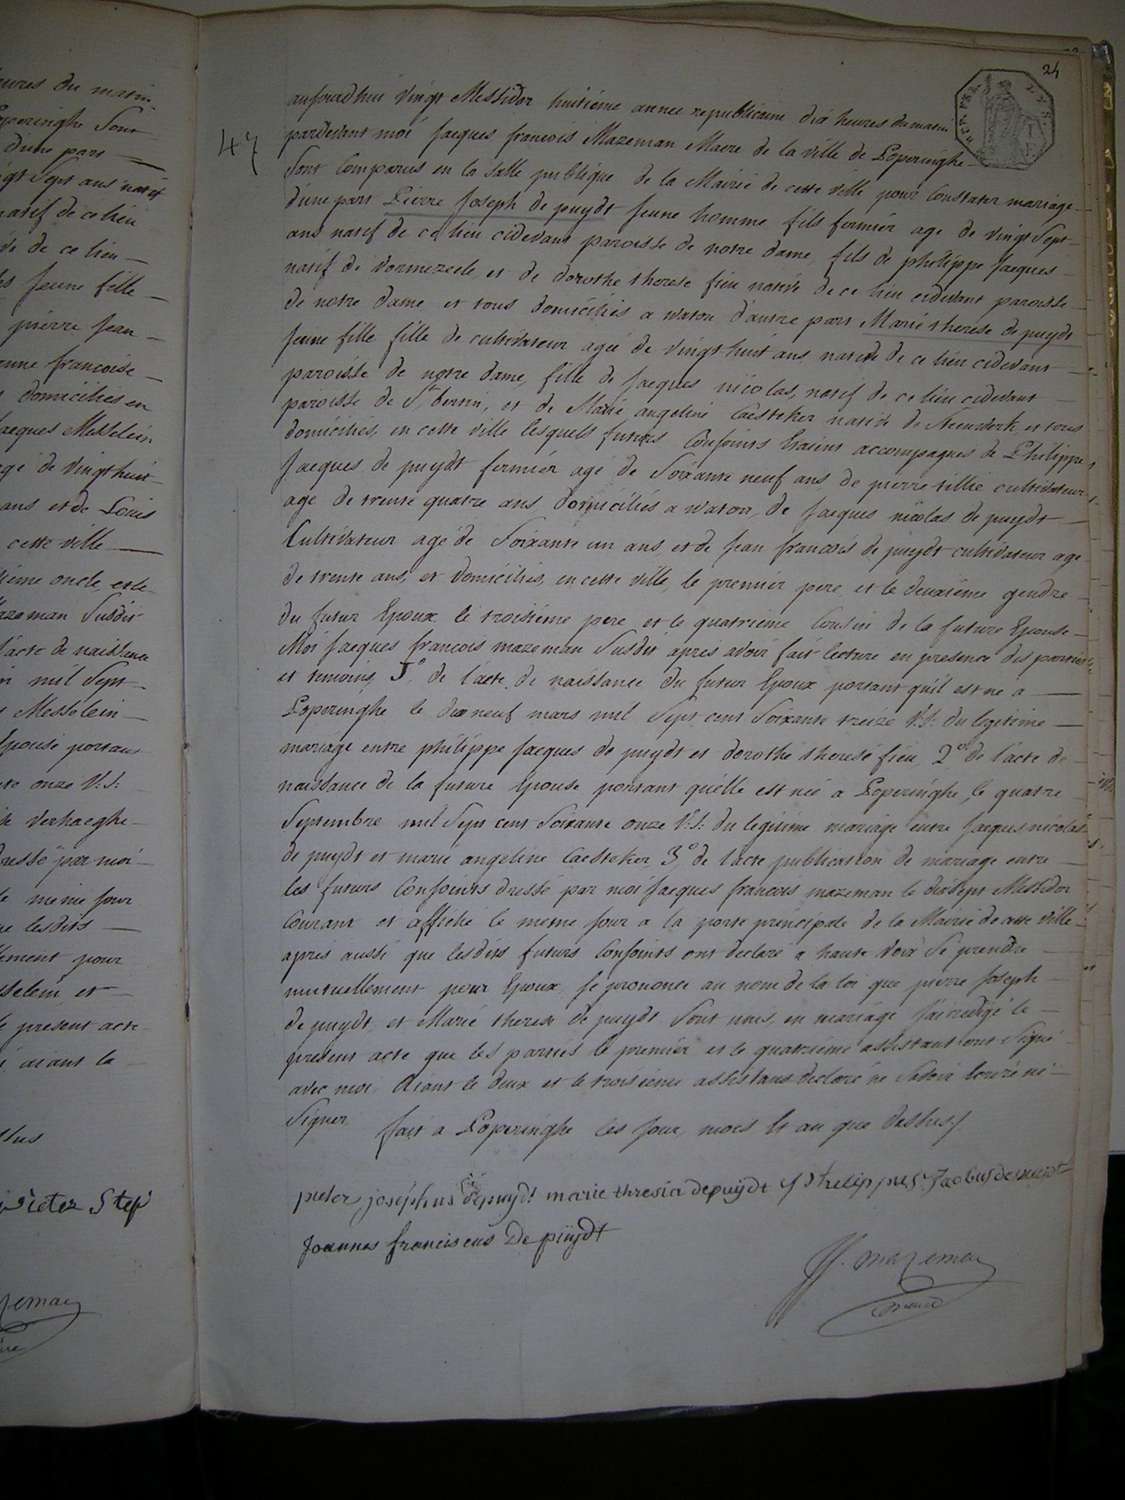 ures du matin
Poperinghe Sont
d'une part
vingt Sept ans natif
natif de ce lieu
de ce lieu
jeune fille
pierre jean
françoise
domiciliés en
jacques Messelein
agé de vingt huit
ans et de Louis
cette ville
oncle et le
Mazeman Susdit
l'acte de naissance
mil Sept
Messelein
Epouse portant
onze V.S.
verhaeghe
dressé par moi
le meme jour
que lesdits
pour
et
le present acte
aiant le
dessus
Pieter Step
24
47
aujourdhui vingt Messidor huitieme année republicaine dix heures du matin
pardevant moi jacques francois Mazeman Maire de la ville de Poperinghe
Sont Comparus en la Salle publique de la Mairie de cette ville pour Constater mariage
d'une part Pierre Joseph de puydt jeune homme fils fermier age de vingt Sept
ans natif de ce lieu cidevant paroisse de notre dame, fils de philippe jacques
natif de vormezeele et de dorothe therese fieu native de ce lieu cidevant paroisse
de notre dame et tous domiciliés a watou d'autre part Marie therese de puydt
jeune fille fille de cultivateur agée de vingt huit ans native de ce lieu cidevant
paroisse de notre dame, fille de jacques nicolas, natif de ce lieu cidevant
paroisse de St bertin, et de Marie angeline Caesteker native de Steenwerk et tous
domiciliés, en cette ville lesquels futurs Conjoints étaient accompagnés de Philippe
jacques de puydt fermier agé de Soixante neuf ans de pierre tillie cultivateur
age de trente quatre ans domiciliés a watou, de jacques nicolas de puydt
Cultivateur agé de Soixante un ans et de jean francois de puydt cultivateur agé
de trente ans, et domiciliés, en cette ville, le premier pere et le deuxième gendre
du futur Epoux le troisième pere et le quatrieme Cousin de la future Epouse
Moi jacques francois mazeman Susdit apres avoir fait lecture en presence des parties
et temoins 1° de l'acte de naissance du futur Epoux portant qu'il est né a
Poperinghe le dix neuf mars mil Sept cent Soixante treize V.S. du legitime
mariage entre philippe jacques de puydt et dorothe therese fieu 2° de l'acte de
naissance de la future Epouse portant qu'elle est née a Poperinghe, le quatre
Septembre mil Sept cent Soixante onze V.S. du legitime mariage entre jacques nicolas
de puydt et marie angeline Caesteker 3° de l'acte publication de mariage entre
les futurs Conjoints dressé par moi jacques francois mazeman le dixsept Messidor
Courant et affiché le meme jour a la porte principale de la Mairie de cette ville
apres aussi que lesdits futurs Conjoints ont declaré a haute voix Se prendre
mutuellement pour Epoux, je prononce au nom de la loi que pierre joseph
de puydt, et Marie therese de puydt Sont unis, en mariage j'ai redigé le
present acte que les parties le premier et le quatrième assistant ont Signé
avec moi aiant le deux et le troisieme assistans declaré ne Savoir écrire ni
Signer
fait a Poperinghe les jour, mois et an que dessus
pieter josephus depuydt marie thresia depuydt philippus Jacobus de puydt
Joannes franciscus De puijdt
JF. mazeman
maire